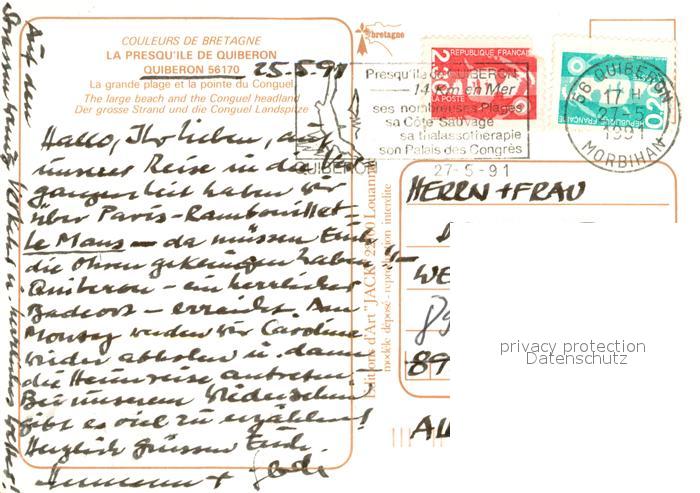 COULEURS DE BRETAGNE
LA PRESQU'ILE DE QUIBERON
QUIBERON 56170
25.5.91
La grande plage et la pointe du Conguel
The large beach and the Conguel headland
Der grosse Strand und die Conguel Landspitze
Hallo, Ihr Lieben, auf
unserer Reise in die Ver-
gangenheit haben wir
über Paris-Rambouillet-
Le Mans — da müssen Euch
die Ohren geklungen haben!! —
Quiberon - ein herrlicher
Badeort - erreicht. Am
Montag werden wir Caroline
wieder abholen u. dann
die Heimreise antreten.
Bei unserem Wiedersehen
gibt es viel zu erzählen!
Herzlich grüssen Euch
Auf den
Verkehr u.
bretagne
REPUBLIQUE FRANCAISE
LA POSTE
2,30
REPUBLIQUE FRANCAISE
0,20
Presqu'ile de QUIBERON
14 Km en Mer
ses nombreuses Plages
sa Côte Sauvage
sa thalassothérapie
son Palais des Congrès
QUIBERON
27-5-91
56 QUIBERON
17 H
27-5
1991
MORBIHAN
Editions d'Art "JACK" 22600 Louannec
modèle déposé - reproduction interdite
HERRN + FRAU
WE
89
AU
privacy protection
Datenschutz